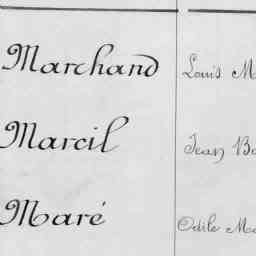 Marchand Louis M
Marcil Jean Ba
Maré Odile Ma